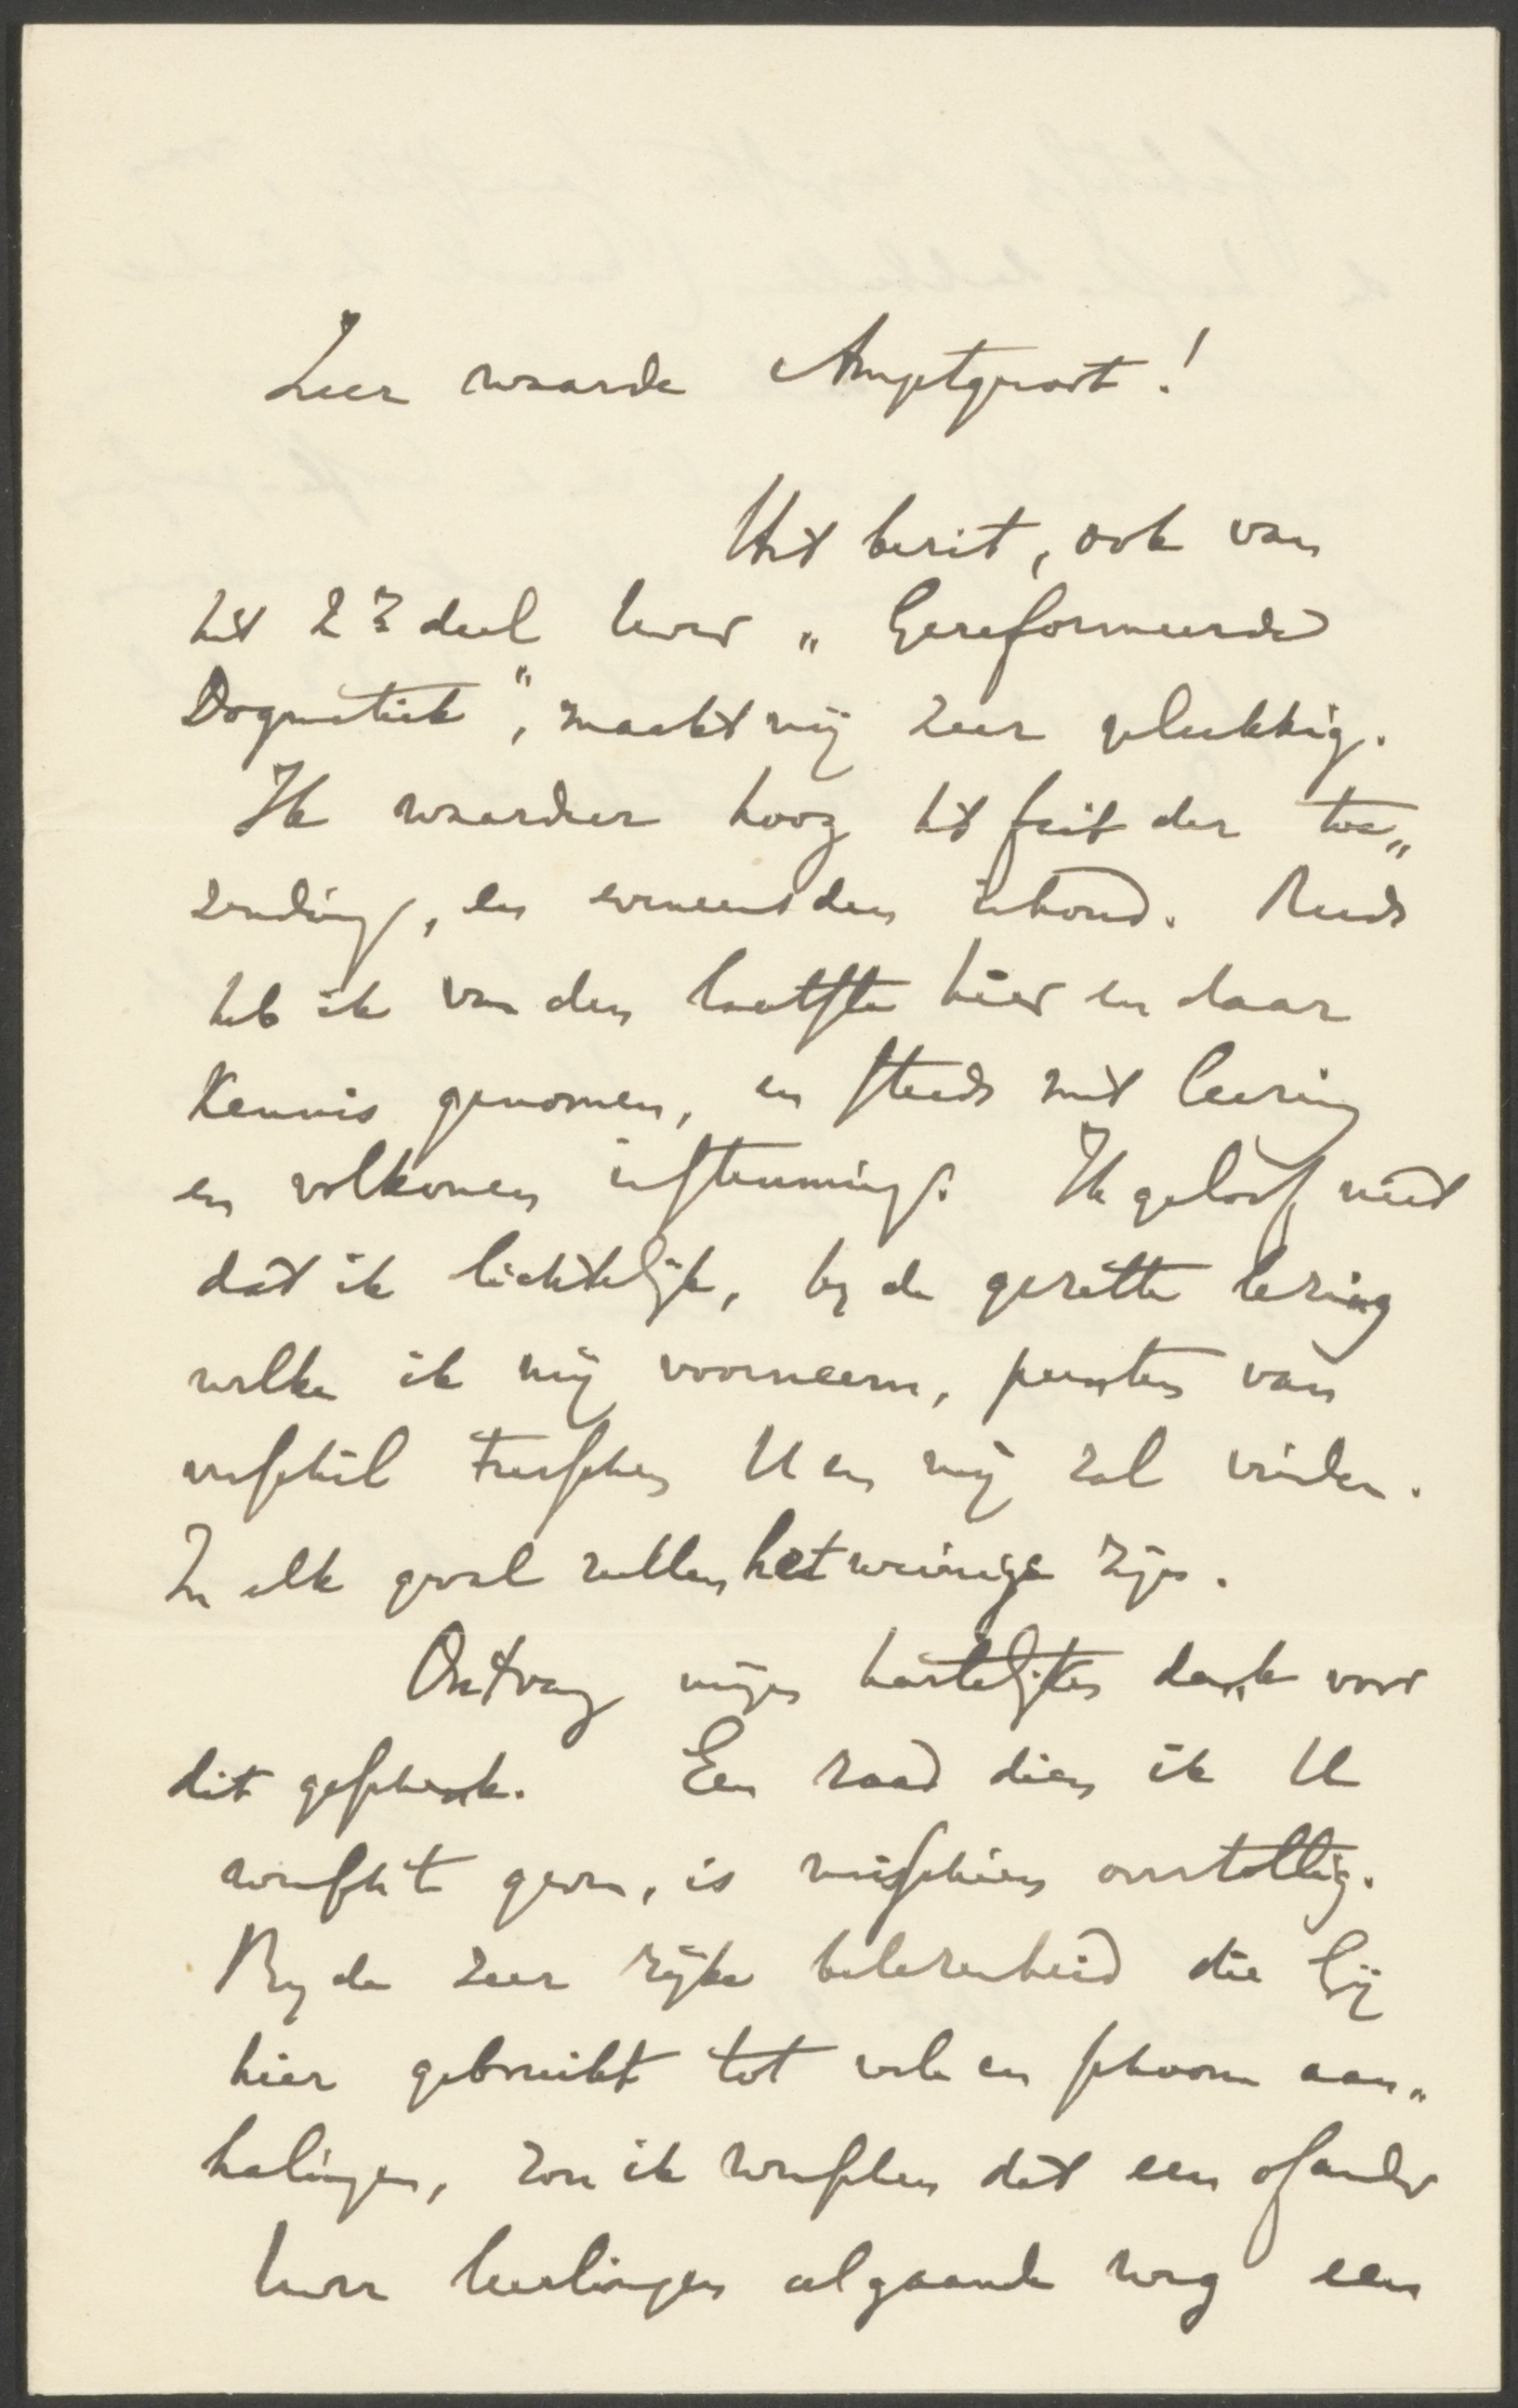 Zeer waarde Amptgenoot!
Het bezit, ook van
het 2e deel Uwer „Gereformeerde
Dogmatiek", maakt mij zeer gelukkig.
Ik waardeer hoog het feit der toe„
zending, en evenens den inhoud. Reeds
heb ik van den laatsten hier en daar
kennis genomen, en steeds met leering
en volkomen instemming. Ik geloof niet
dat ik lichtelijk, bij de gezette lezing
welke ik mij voorneem, punten van
verschil tusschen U en mij zal vinden.
In elk geval zullen het weinige zijn.
Ontvang mijn hartelijken dank voor
dit geschenk. Een raad dien ik U
wensch te geven, is misschien overtollig.
Bij de zeer rijke belezenheid die Gij
hier gebruikt tot vele en schoone aan„
halingen, zou ik wenschen dat een of ander
Uwer leerlingen algaande weg een